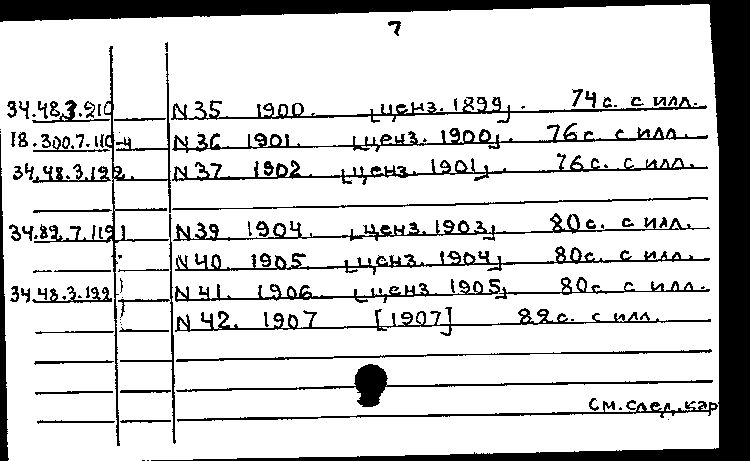 7
34.48.3.210 N 35 1900. [ценз. 1899]. 74 с. с илл.
18.300.7.110-4 N 36 1901. [ценз. 1900]. 76 с. с илл.
34.48.3.122. N 37 1902. [ценз. 1901]. 76 с. с илл.
34.82.7.119 N 39 1904. [ценз. 1903] 80 с. с илл.
N 40 1905. [ценз. 1904] 80 с. с илл.
34.48.3.122 N 41. 1906 [ценз. 1905] 80 с. с илл.
N 42. 1907 [1907] 82 с. с илл.
См. след. кар